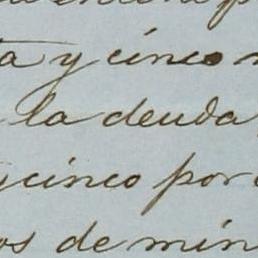 ta y cinco
la deuda
y cinco por
os de min